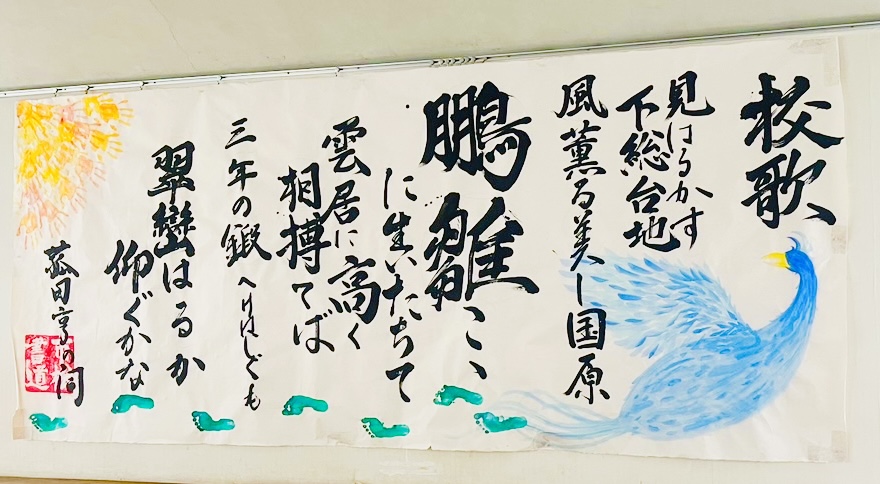 校歌
見はるかす
下総台地
風薫る美し国原
鵬雛こゝ
に生いたちて
雲居に高く
相搏てば
三年の鍛へけはしども
翠巒はるか
仰ぐかな
菰田亨の詞